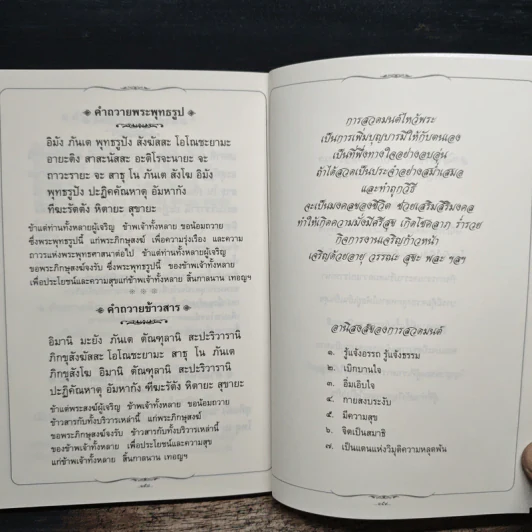 คำถวายพระพุทธรูป
อิมัง ภันเต พุทธรูปัง สังฆัสสะ โอโณชะยามะ
อายะติง สาสะนัสสะ อะติโรจะนายะ จะ
ถาวะรายะ จะ สาธุ โน ภันเต สังโฆ อิมัง
พุทธรูปัง ปะฏิคคัณหาตุ อัมหากัง
ฑีฆะรัตตัง หิตายะ สุขายะ
ข้าแต่ท่านทั้งหลายผู้เจริญ ข้าพเจ้าทั้งหลาย ขอน้อมถวาย
ซึ่งพระพุทธรูปนี้ แก่พระภิกษุสงฆ์ เพื่อความรุ่งเรือง และความ
ถาวรแห่งพระพุทธศาสนาต่อไป ข้าแต่ท่านทั้งหลายผู้เจริญ
ขอพระภิกษุสงฆ์จงรับ ซึ่งพระพุทธรูปนี้ ของข้าพเจ้าทั้งหลาย
เพื่อประโยชน์และความสุขแก่ข้าพเจ้าทั้งหลาย สิ้นกาลนาน เทอญฯ
คำถวายข้าวสาร
อิมานิ มะยัง ภันเต ตัณฑุลานิ สะปะริวารานิ
ภิกขุสังฆัสสะ โอโณชะยามะ สาธุ โน ภันเต
ภิกขุสังโฆ อิมานิ ตัณฑุลานิ สะปะริวารานิ
ปะฏิคคัณหาตุ อัมหากัง ฑีฆะรัตตัง หิตายะ สุขายะ
ข้าแต่พระสงฆ์ผู้เจริญ ข้าพเจ้าทั้งหลาย ขอน้อมถวาย
ข้าวสารกับทั้งบริวารเหล่านี้ แก่พระภิกษุสงฆ์
ขอพระภิกษุสงฆ์จงรับ ข้าวสารกับทั้งบริวารเหล่านี้
ของข้าพเจ้าทั้งหลาย เพื่อประโยชน์และความสุข
แก่ข้าพเจ้าทั้งหลาย สิ้นกาลนาน เทอญฯ
การสวดมนต์ไหว้พระ
เป็นการเพิ่มบุญบารมีให้กับตนเอง
เป็นที่พึ่งทางใจอย่างอบอุ่น
ถ้าได้สวดเป็นประจำอย่างสม่ำเสมอ
และทำถูกวิธี
จะเป็นมงคลของชีวิต ช่วยเสริมสิริมงคล
ทำให้เกิดความมั่งมีศรีสุข เกิดโชคลาภ ร่ำรวย
กิจการงานเจริญก้าวหน้า
เจริญด้วยอายุ วรรณะ สุขะ พละ ฯลฯ
อานิสงส์ของการสวดมนต์
๑. รู้แจ้งอรรถ รู้แจ้งธรรม
๒. เบิกบานใจ
๓. อิ่มเอิบใจ
๔. กายสงบระงับ
๕. มีความสุข
๖. จิตเป็นสมาธิ
๗. เป็นแดนแห่งวิมุติความหลุดพ้น